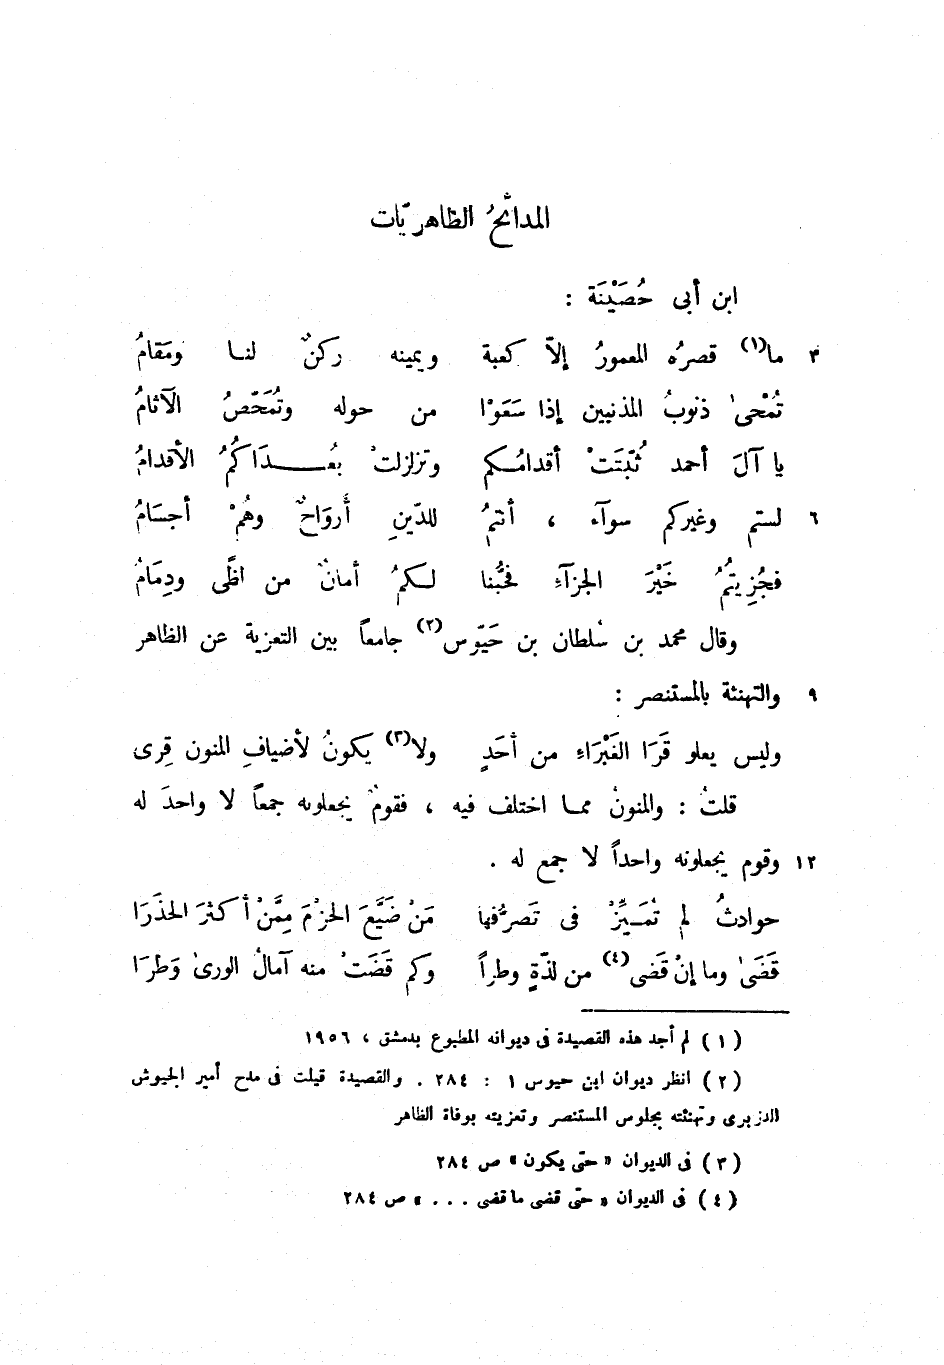 المدائحُ الظاهريّات
ابن أبى حُصَيْنَة :
٣ ما(١) قصرُه المعمورُ إلاّ كعبة ويمينه ركنٌ لنـا ومَقامُ
تُمْحىٰ ذنوبُ المذنبين إذا سَعَوْا من حوله وتُمَحّصُ الآثامُ
يا آلَ أحمد ثُبّتَتْ أقدامُـكم وتزلزلتْ بعُـداكُمُ الأقدامُ
٦ لستم وغيركم سوآء ، أنتمُ للدّينِ أرواحٌ وهُمْ أجسَامُ
فجُزِيتمُ خَيْرَ الجزآءِ فحُبُّنا لـكمُ أمانٌ من لظًى ودِمَامُ
وقال محمد بن سُلطان بن حَيّوس(٢) جامعاً بين التعزية عن الظاهر
٩ والتهنئة بالمستنصر :
وليس يعلو قَرَا الغَبْرَاءِ من أحَدٍ ولا(٣) يكونُ لأضيافِ المنون قِرى
قلتُ : والمنونُ ممـا اختلف فيه ، فقومٌ يجعلونه جمعاً لا واحدَ له
١٢ وقوم يجعلونه واحداً لا جمع له .
حوادثُ لم تُمَـيّزْ فى تَصرُّفها مَنْ ضَيَّعَ الحزْمَ مِمَّنْ أكثرَ الحَذَرَا
قَضَىٰ وما إنْ قَضى(٤) من لذّةٍ وطراً وكم قَضَتْ منه آمالُ الورىٰ وَطرَا
(١) لم أجد هذه القصيدة فى ديوانه المطبوع بدمشق ، ١٩٥٦
(٢) انظر ديوان ابن حيوس ١ : ٢٨٤ . والقصيدة قيلت فى مدح أمير الجيوش
الدزبرى وتهنئته بجلوس المستنصر وتعزيته بوفاة الظاهر
(٣) فى الديوان « حتى يكون » ص ٢٨٤
(٤) فى الديوان « حتّى قضى ما قضى . . . » ص ٢٨٤